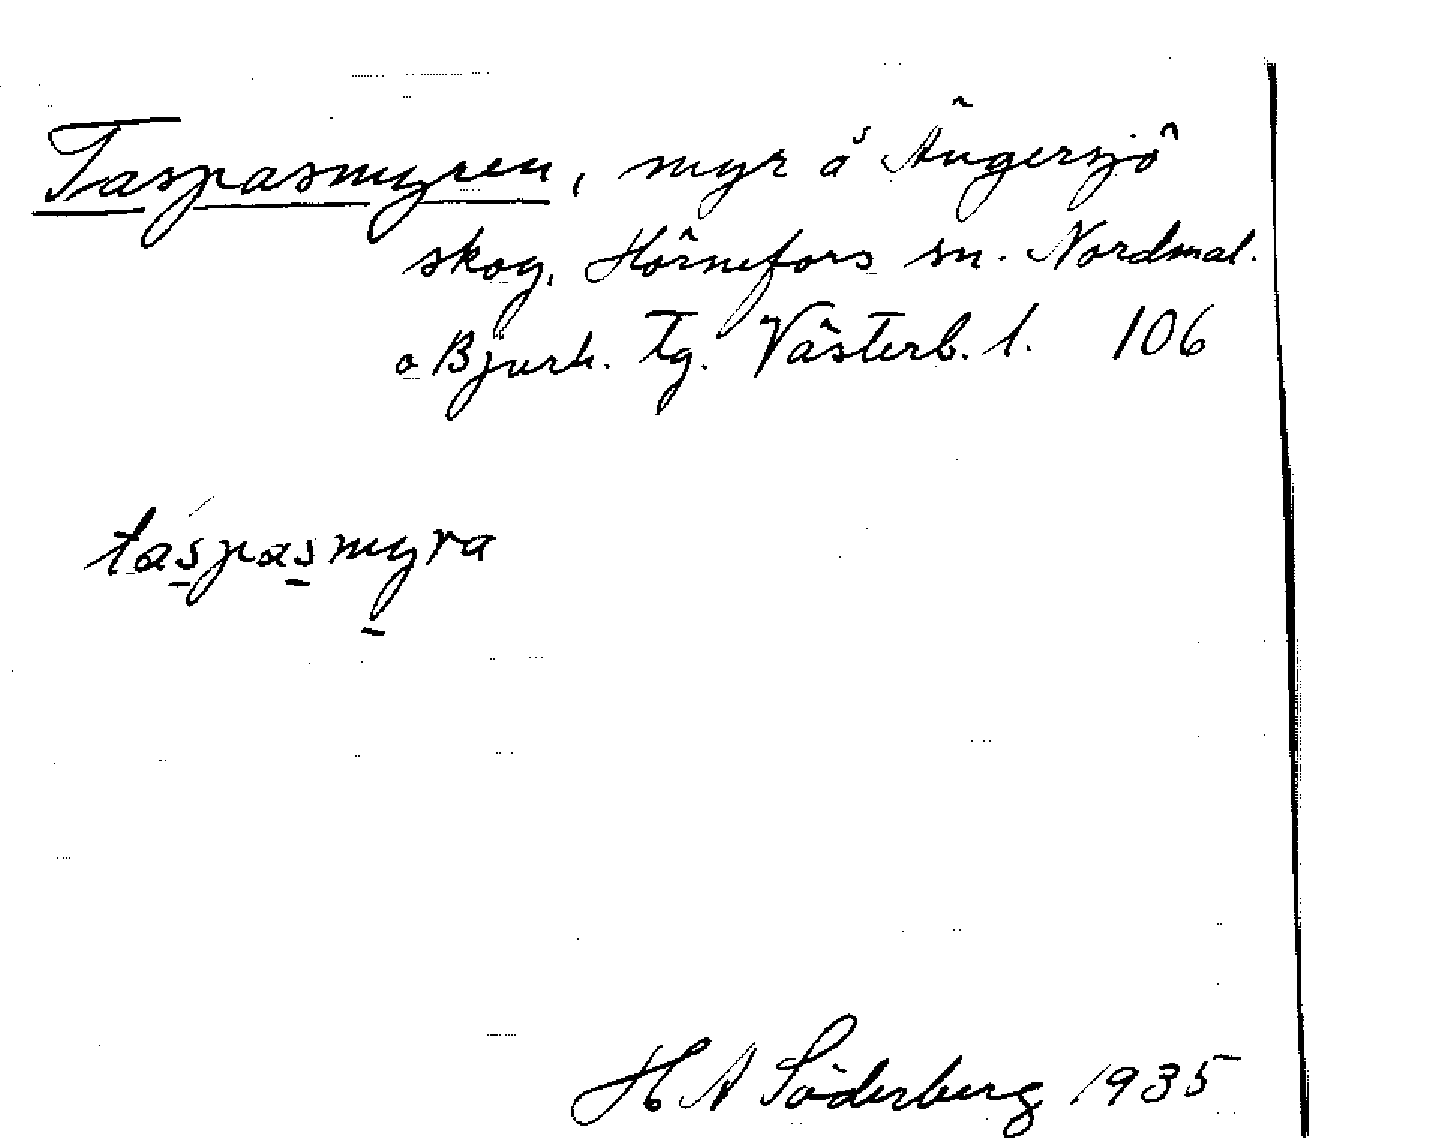 Taspasmyren, myr å Ängersjö
skog, Hörnefors sn. Nordmal.
o Bjurh. tg. Västerb. l. 106
táspasmyra
H A Söderberg 1935